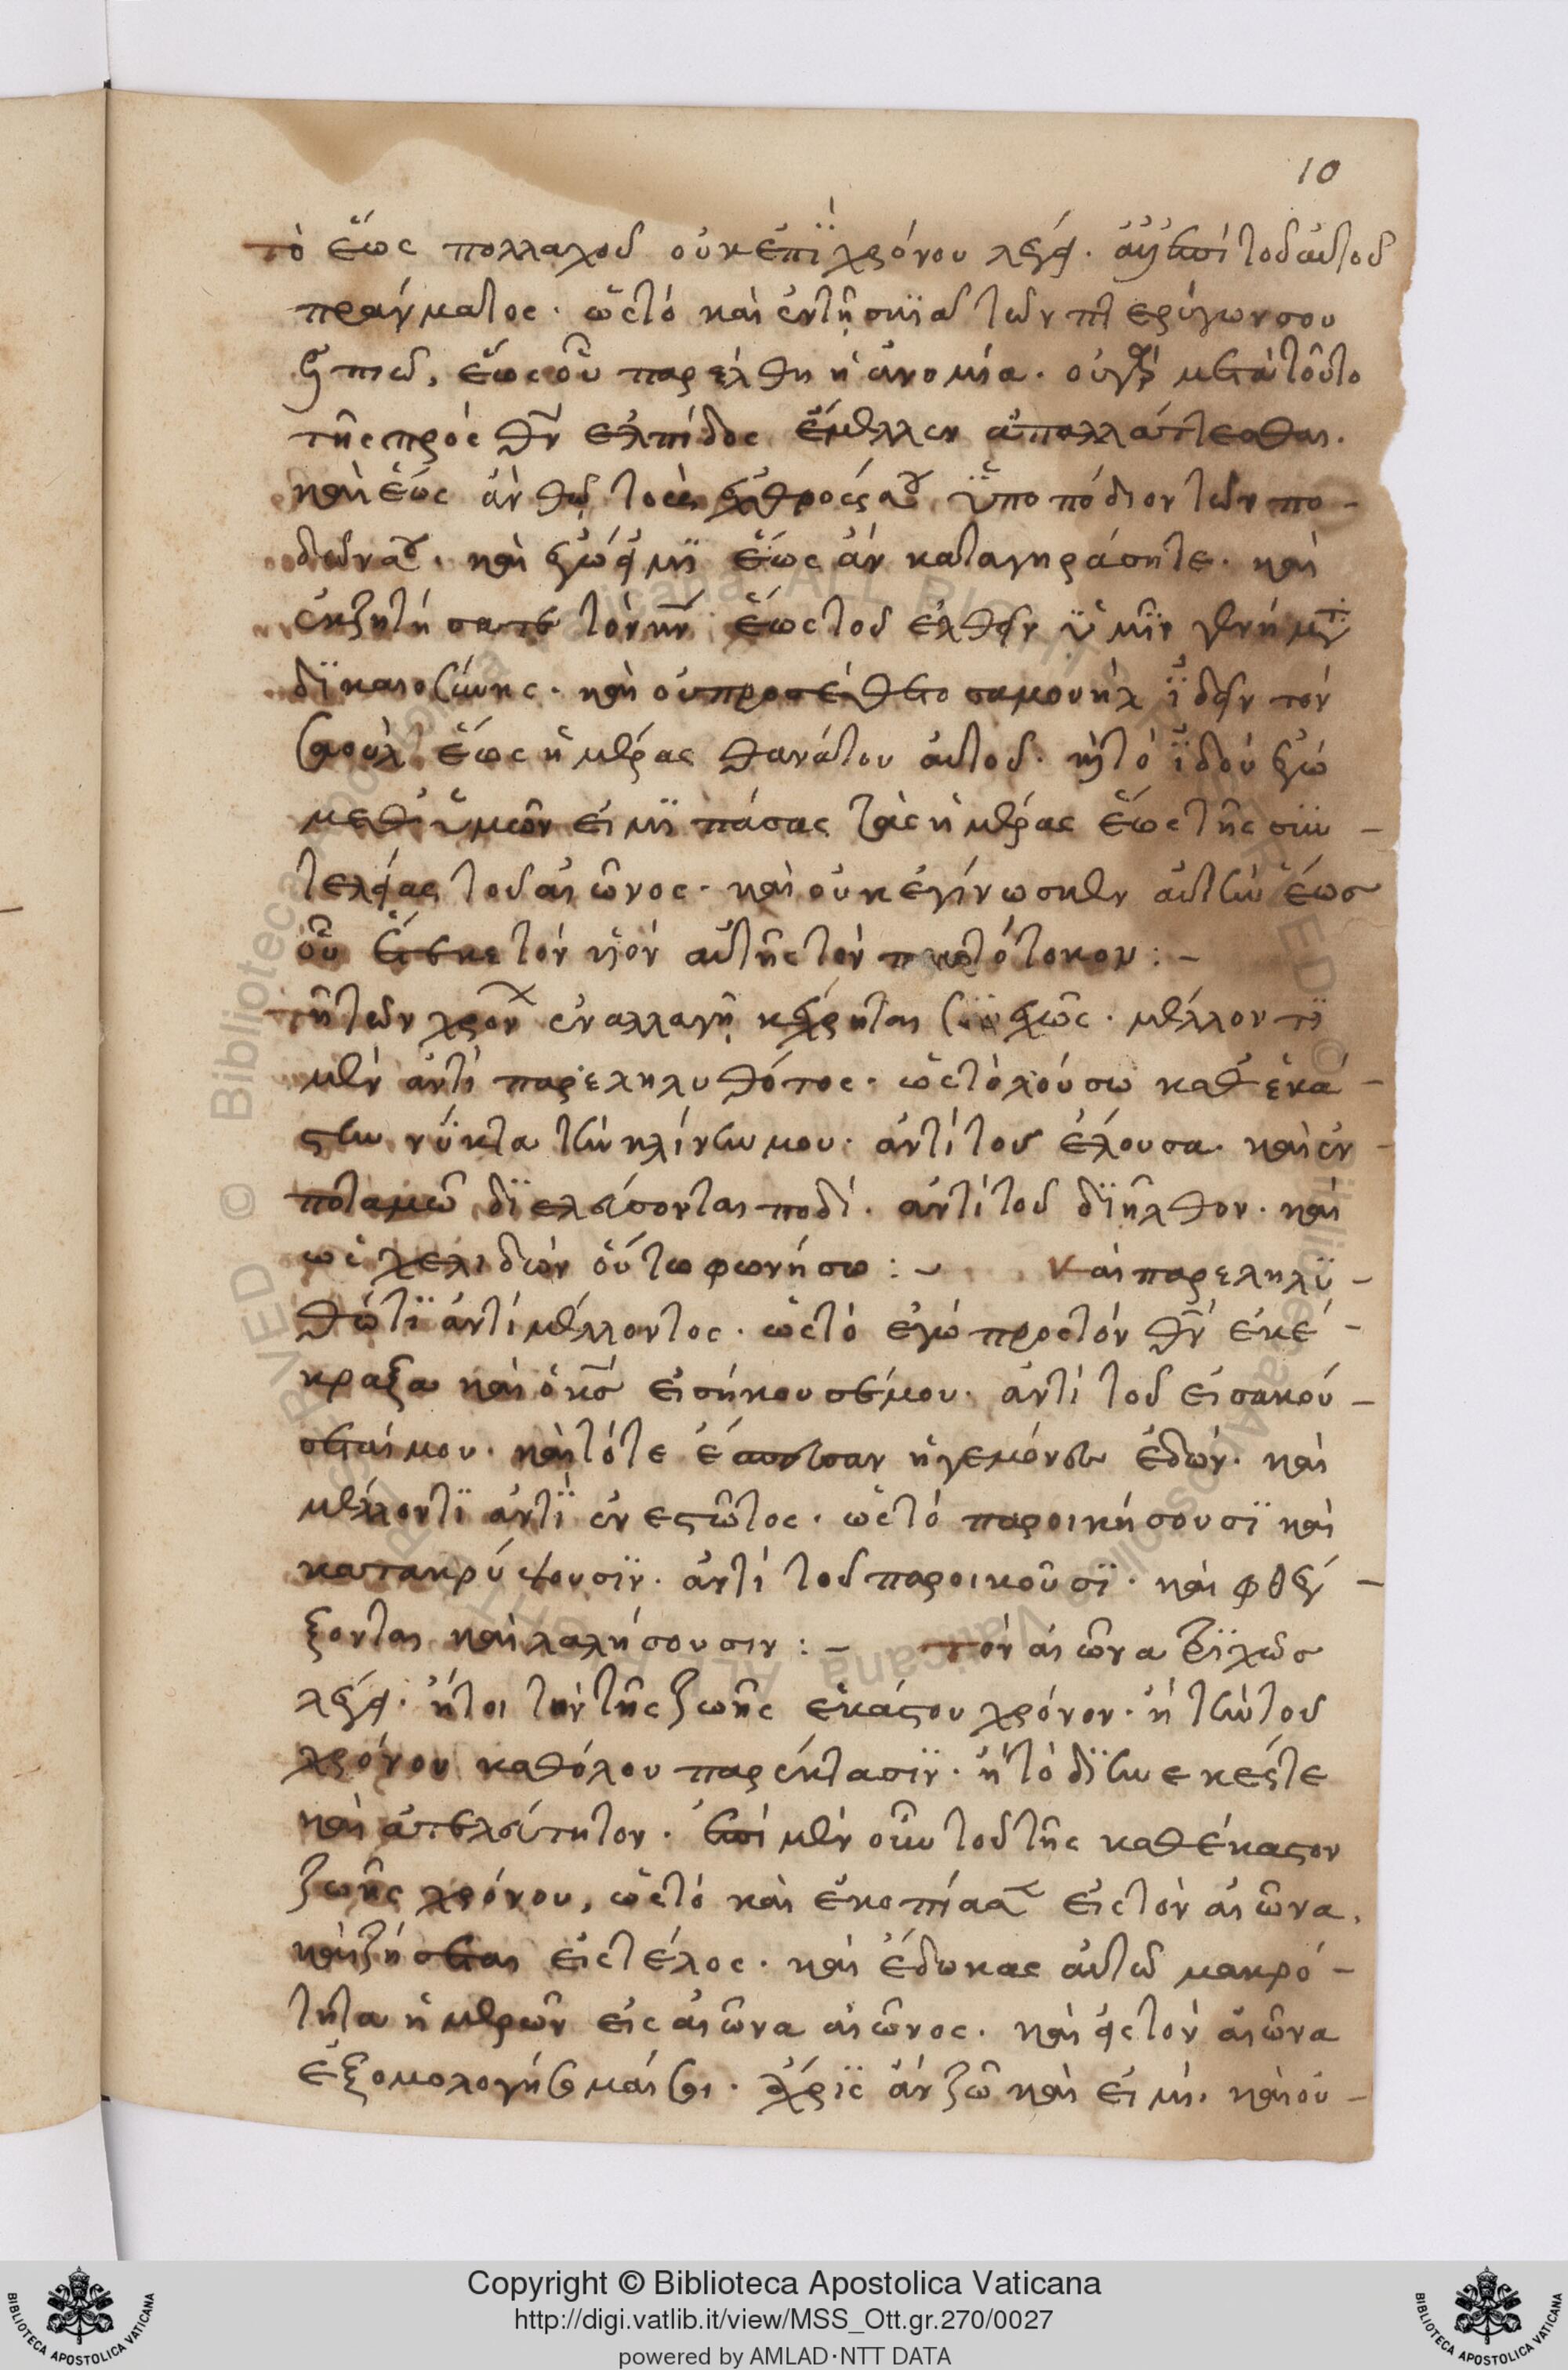 10
τὸ ἕως πολλαχοῦ οὐκ ἐπῒ χρόνου λέγει. ἀλλ' ἐπὶ τοῦ αὐτοῦ
πράγματος. ὡς τὸ καὶ ἐν τῇ σκιᾷ τῶν πτερύγων σου
ἐλπιῶ, ἕως οὗ παρέλθη ἡ ἀνομία. οὐ γὰρ μετὰ τοῦτο
τῆς πρὸς θν ἐλπίδος ἔμελλεν ἀπαλλάττεσθαι.
καὶ ἕως ἂν θῶ τοὺς ἐχθρούς σου ὑποπόδιον τῶν πο-
δῶν σου. καὶ ἐγώ εἰμϊ ἕως ἂν καταγηράσητε. καὶ
ἐκζητήσατε τὸν κν ἕως τοῦ ἐλθεῖν ὑμῖν γενήματα
δϊκαιοσύνης. καὶ οὐ προσέθετο σαμουὴλ ἰδεῖν τὸν
σαοὺλ ἕως ἡμέρας θανάτου αὐτοῦ. καὶ τὸ ἰδοὺ ἐγὼ
μεθ' ὑμῶν εἰμϊ πάσας τὰς ἡμέρας ἕως τῆς συν-
τελείας τοῦ αἰῶνος. καὶ οὐκ ἐγίνωσκεν αὐτὴν ἕωσ
οὗ ἔτεκε τὸν υἱὸν αὐτῆς τὸν πρωτότοκον:-
τῆ τῶν χρόνων ἐναλλαγῇ κέχρηται συνεχῶς. μέλλοντϊ
μὲν ἀντὶ παρεληλυθότος. ὡς τὸ λούσω καθ' ἑκά-
στην νύκτα τὴν κλίνην μου. ἀντὶ τοῦ ἔλουσα. καὶ ἐν
ποταμῶ δϊελεύσονται ποδί. ἀντὶ τοῦ δϊῆλθον. καὶ
ὡς χελιδὼν οὕτω φωνήσω:- καὶ παρεληλϋ-
θότϊ ἀντὶ μέλλοντος. ὡς τὸ ἐγὼ πρὸς τὸν θν ἐκέ-
κραξα καὶ ὁ κς εἰσήκουσέ μου. ἀντὶ τοῦ εἰσακού-
σεταί μου. καὶ τότε ἔσπευσαν ἡγεμόνες ἐδώμ. καὶ
μέλλοντϊ ἀντῒ ἐνεστῶτος. ὡς τὸ παροικήσουσϊ καὶ
κατακρύψουσϊν. ἀντὶ τοῦ παροικοῦσϊ. καὶ φθέγ-
ξονται καὶ λαλήσουσιν:- τὸν αἰῶνα τρϊχῶσ
λέγει. ἤτοι τὸν τῆς ζωῆς ἑκάστου χρόνον. ἢ τὴν τοῦ
χρόνου καθόλου παρέκτασϊν. ἢ τὸ δϊηνεκές τε
καὶ ἀτελεύτητον. ἐπὶ μὲν οὖν τοῦ τῆς καθ' ἕκαστον
ζωῆς χρόνου, ὡς τὸ καὶ ἐκοπίασεν εἰς τὸν αἰῶνα,
καὶ ζήσεται εἰς τέλος. καὶ ἔδωκας αὐτῶ μακρό-
τητα ἡμερῶν εἰς αἰῶνα αἰῶνος. καὶ εἰς τὸν αἰῶνα
ἐξομολογήσομαί σοι. ἄχρϊς ἂν ζῶ καὶ εἰμι. καὶ οὐ-
Copyright © Biblioteca Apostolica Vaticana
http://digi.vatlib.it/view/MSS_Ott.gr.270/0027
powered by AMLAD·NTT DATA
BIBLIOTECA APOSTOLICA VATICANA
BIBLIOTECA APOSTOLICA VATICANA